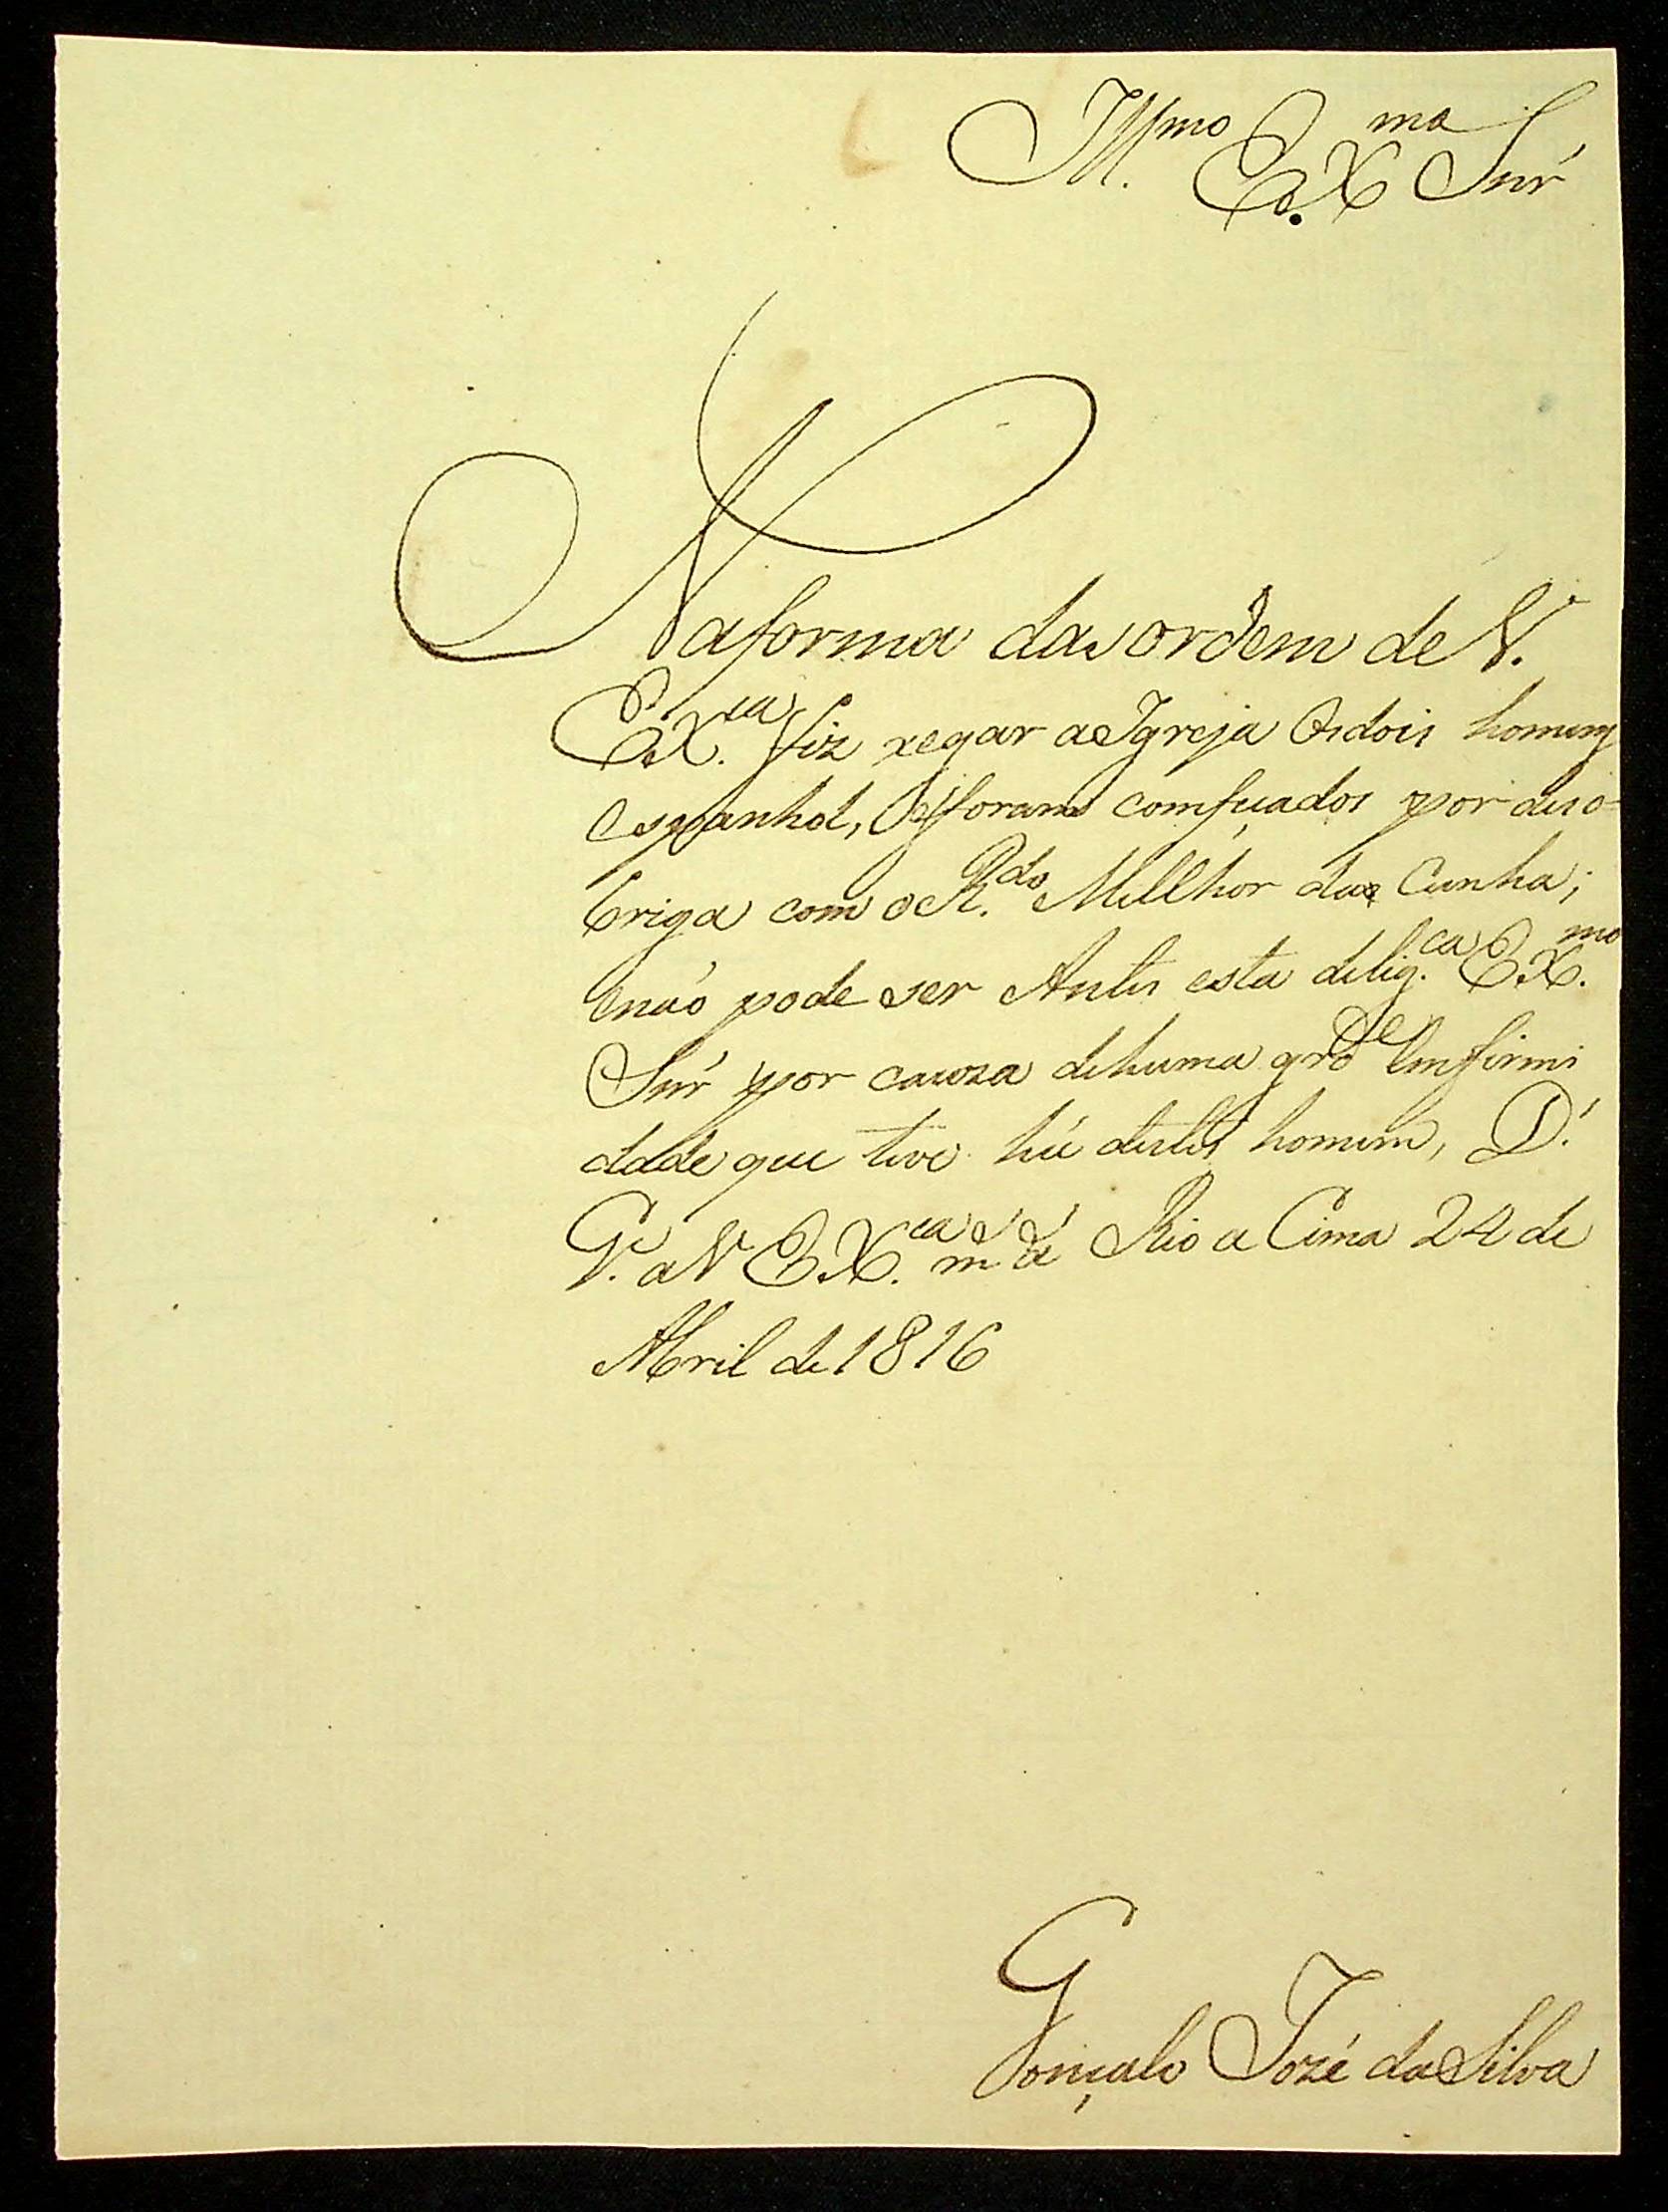 Ill.mo Ex.mo Snr'
Na forma da ordem de V.
Ex.ca fiz xegar a Igreja Os dois homens
espanhol, q foram comfuados por diso-
briga com o R.do Mellhor da Cunha;
e naó pode ser Antes esta delig.ca Ex.mo
Snr' por cauza de huma grde emfirmi
dade que teve hú destes homens, D.'
G. a V Ex.ca m. a' Rio a Cima 24 de
Abril de 1816
Gonçalo Jozé da Silva